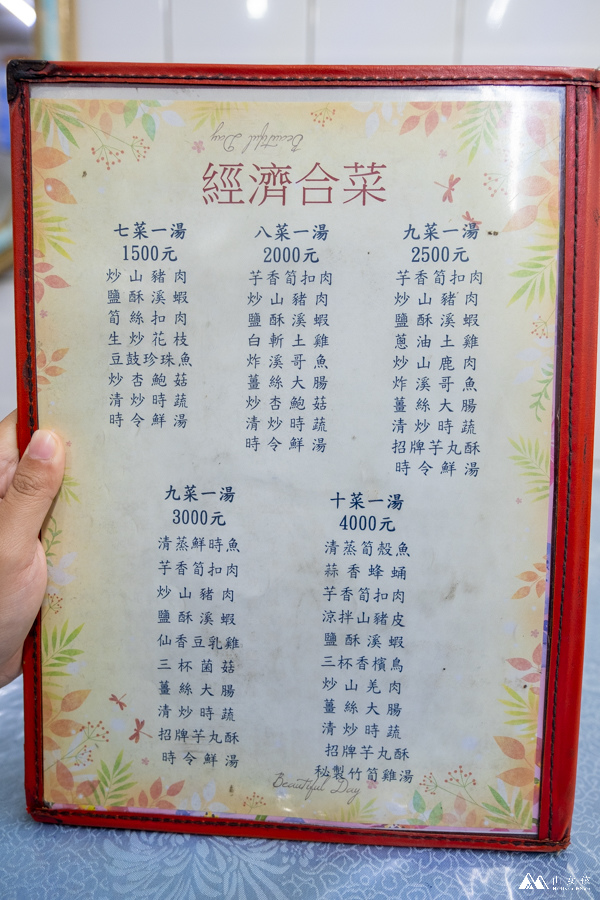 Beautiful Day
經濟合菜
七菜一湯
1500元
炒山豬肉
鹽酥溪蝦
筍絲扣肉
生炒花枝
豆鼓珍珠魚
炒杏鮑菇
清炒時蔬
時令鮮湯
八菜一湯
2000元
芋香筍扣肉
炒山豬肉
鹽酥溪蝦
白斬土雞
炸溪哥魚
薑絲大腸
炒杏鮑菇
清炒時蔬
時令鮮湯
九菜一湯
2500元
芋香筍扣肉
炒山豬肉
鹽酥溪蝦
蔥油土雞
炒山鹿肉
炸溪哥魚
薑絲大腸
清炒時蔬
招牌芋丸酥
時令鮮湯
九菜一湯
3000元
清蒸鮮時魚
芋香筍扣肉
炒山豬肉
鹽酥溪蝦
仙香豆乳雞
三杯菌菇
薑絲大腸
清炒時蔬
招牌芋丸酥
時令鮮湯
十菜一湯
4000元
清蒸筍殼魚
蒜香蜂蛹
芋香筍扣肉
涼拌山豬皮
鹽酥溪蝦
三杯香檳鳥
炒山羌肉
薑絲大腸
清炒時蔬
招牌芋丸酥
秘製竹筍雞湯
Beautiful Day